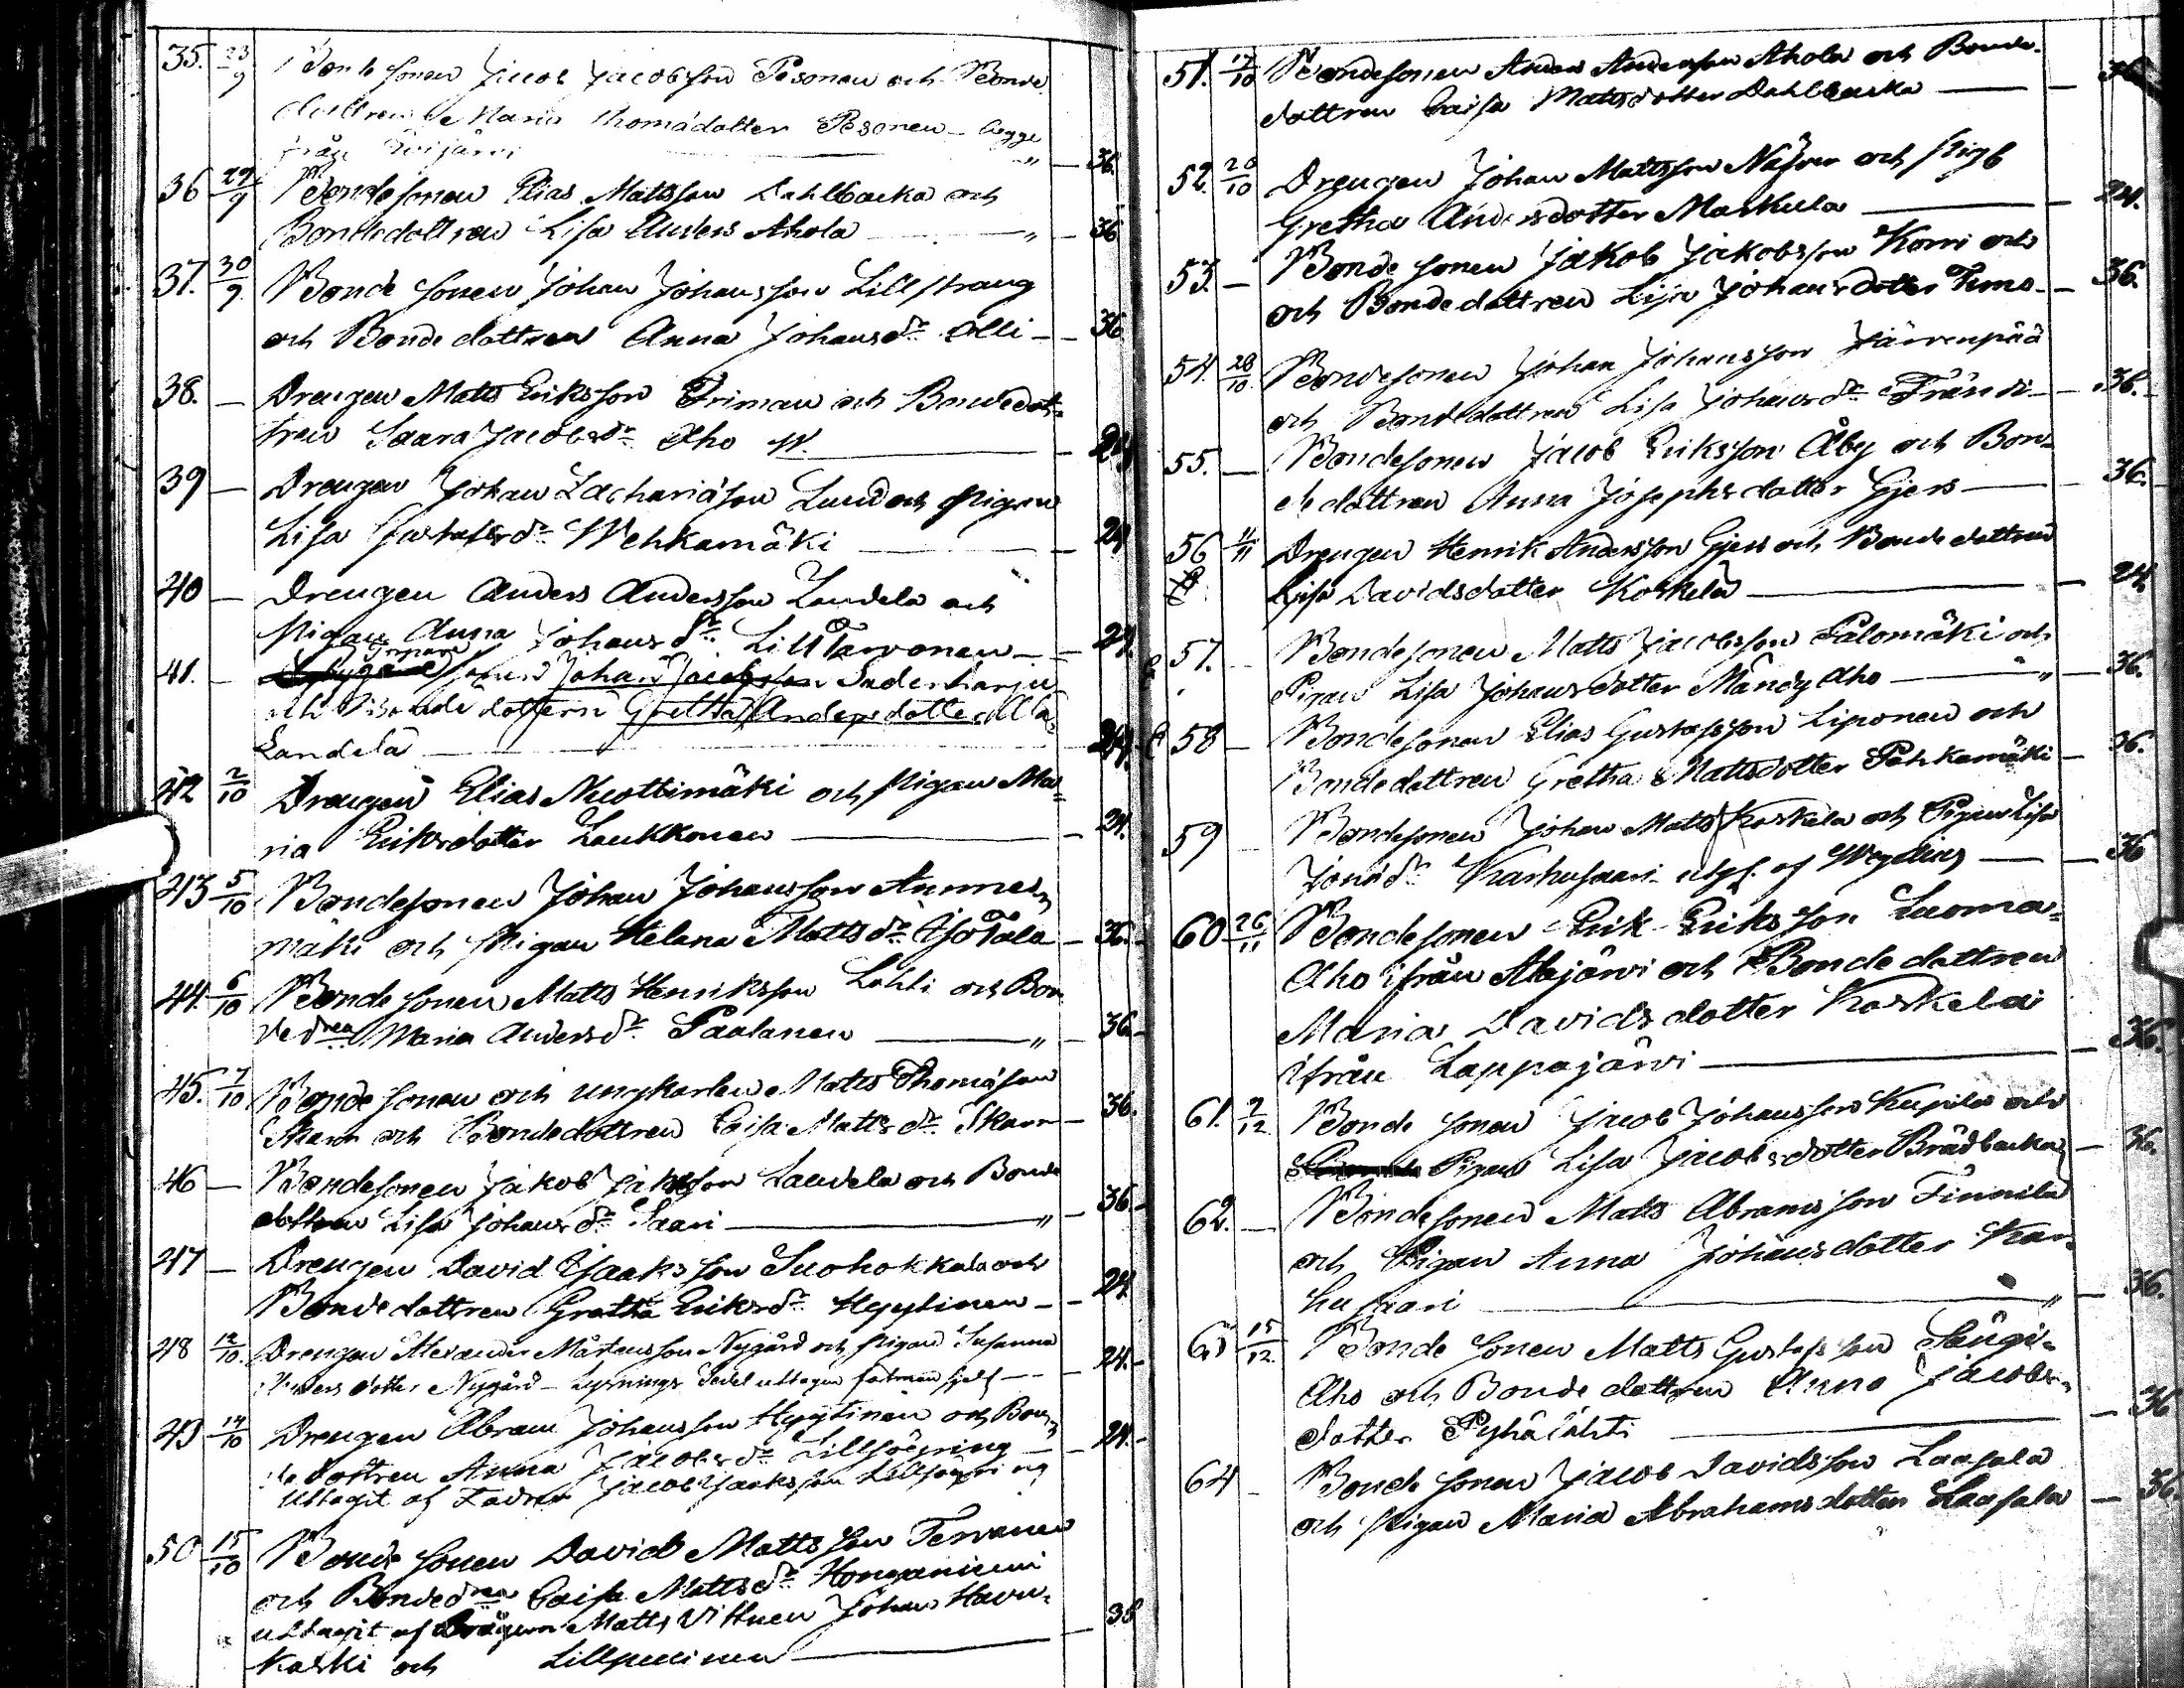 35. 23/9 Bonde sonen Jacob Jacobsson Pesonen och Bonde
dottren Maria Thomadotter Pesonen - begge
från " - 36.
36 29/9 Bondesonen Elias Mattsson Dahlbacka och
Bondedottren Lisa Anders Ahola " - 36
37. 30/9 Bonde sonen Johan Johansson Lillstrang
och Bonde dottren Anna Johansdr Olli - 36
38. - Drengen Matts Eriksson Friman och Bondedot-
tren Saara Jacobsdr Aho - 24
39 - Drengen Johan Zachariasson Lund och Pigan
Lisa Gustafsdr Wehkamäki - 24
40 - Drengen Anders Andersson Landela och
Pigan Anna Johansdr Lill Tarvonen - 24.
41. - sonen Johan Jacobsson Sederharju
och Bonde dottern Gretha Andersdotter Ala-
Landela - 24.
42 2/10 Drengen Elias Nuottimäki och Pigan Ma-
ria Eriksdotter Laukkonen - 24.
43 5/10 Bondesonen Johan Johansson Ammes-
mäki och Pigan Helena Mattsdr Isotalo - 36.
44. 6/10 Bonde sonen Matts Henriksson Lahti och Bon-
dedren Maria Andersdr Paalanen " - 36.
45. 7/10 Bonde sonen och ungkarlen Matts Thomasson
Skarn och Bondedottren Caisa Mattsdr Skarn - 36.
46 - Bondesonen Jakob Jakobsson Landela och Bonde
dottren Lisa Johansdr Saari " - 36.
47 - Drengen David Isaksson Suohokkala och
Bondedottren Gretha Eriksdr Hyytinen - 24.
48 12/10. Drengen Alexander Mårtensson Nygård och Pigan Susanna
Anders dotter Nygård - Lysnings Sedel uttagen fästman sjelf - 24.
49 14/10 Drengen Abram Johansson Hyytinen och Bon-
de dottren Anna Jacobsdr Lillsöyring - 24.
Uttagit af Fadren Jacob Isaksson Lillsöyring
50 15/10 Bonde sonen David Mattsson Tervanen
och Bondedren Caisa Mattsdr Honganiemi
uttagit af Drägaren Matts Vittnen Johan Havu-
koski och Lillpuuinen - 36
51. 17/10 Bondesonen Anders Andersson Ahola och Bonde-
dottren Caisa Mattsdotter Dahlbacka - 36
52. 20/10 Drengen Johan Mattsson Näsen och Pigb
Gretha Andersdotter Maskula - 24.
53. - Bonde sonen Jakob Jakobsson Korri och
och Bondedottren Lisa Johansdotter Timo - 36.
54. 28/10. Bondesonen Johan Johansson Järvenpää
och Bondedottren Lisa Johansdr Frändi - 36.
55. - Bondesonen Jacob Eriksson Åby och Bon-
de dottren Anna Josephsdotter Gjers - 36.
56 11/11 Drengen Henrik Andersson Gjers och Bonde dottren
Lisa Davidsdotter Koskela - 24
57. - Bondesonen Matts Jacobsson Palomäki och
Pigan Lisa Johansdotter Mändy Aho " - 36.
58 - Bondesonen Elias Gustafsson Liponen och
Bondedottren Gretha Mattsdotter Pahkamäki - 36.
59 Bondesonen Johan Matts Koskela och Pigan Lisa
Jonasdr Karhusaari - utg. af - 36
60 26/11 Bondesonen Erik Eriksson Luoma-
Aho ifrån Alajärvi och Bonde dottren
Maria Davidsdotter Koskela
ifrån Lappajärvi - 36.
61. 2/12 Bonde sonen Jacob Johansson Kupila och
Pigan Lisa Jacobsdotter Brådbacka - 36.
62. - Bondesonen Matts Abramsson Finnilä
och Pigan Anna Johansdotter Kar-
husaari " - 36.
63 15/12. Bonde sonen Matts Gustafsson Sängi-
Aho och Bonde dottren Anna Jacobs-
dotter Pyhälahti - 36
64 - Bonde sonen Jacob Davidsson Laasala
och Pigan Maria Abrahamsdotter Laasala - 36.